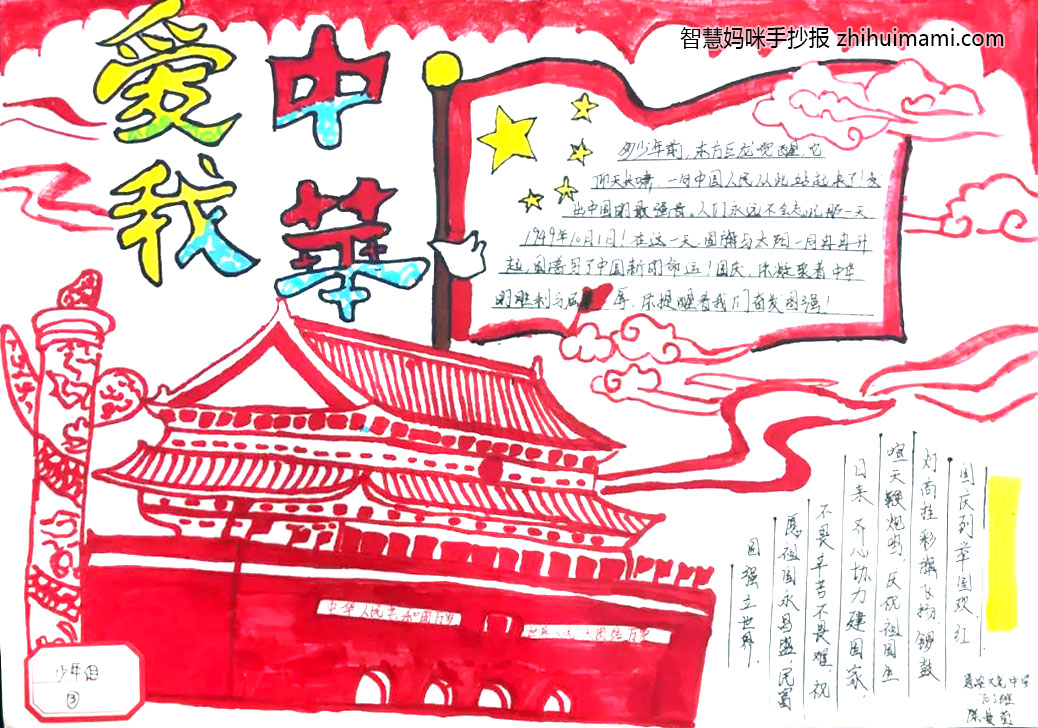 智慧妈咪手抄报 zhihuimami.com
爱我
中華
多少年前,东方巨龙觉醒,它
仰天长啸,一句中国人民从此站起来了!发
出中国的最强音。人们永远不会忘记那一天
1949年10月1日!在这一天,国旗与太阳一同冉冉升
起,国谱写了中国新的命运!国庆,承载着中华
的胜利与屈辱,乐提醒着我们奋发图强!
国庆到举国欢,红
灯高挂彩旗飞扬,锣鼓
喧天鞭炮鸣,庆祝祖国生
日来。齐心协力建国家,
不畏辛苦不畏难,祝
愿祖国永昌盛,民富
国强立世界。
中华人民共和国万岁
世界人民大团结万岁
少年组
③
701班